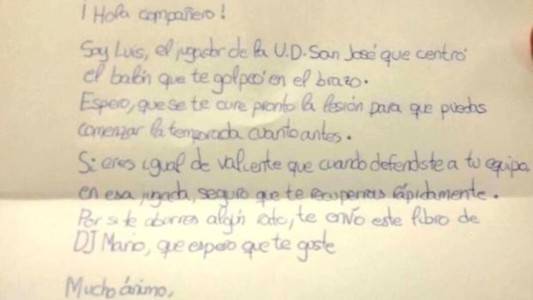 ¡Hola compañero!
Soy Luis, el jugador de la U.D. San José que centró
el balón que te golpeó en el brazo.
Espero, que se te cure pronto la lesión para que puedas
comenzar la temporada cuanto antes.
Si eres igual de valiente que cuando defendiste a tu equipo,
en esa jugada, seguro que te recuperas rápidamente.
Por si te aburres algún rato, te envío este libro de
DJ Mario, que espero que te guste
Mucho ánimo,